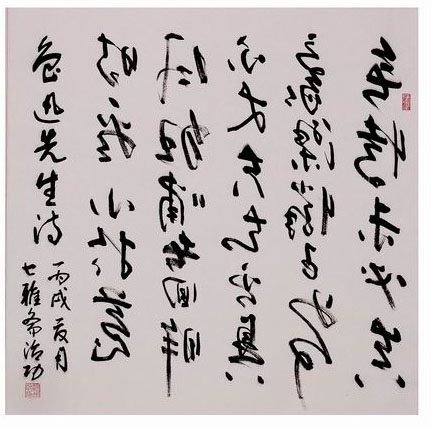 无情未必真
豪杰怜子如何
不丈夫知否兴
风狂啸者回眸
时看小於菟
鲁迅先生诗
丙戌夏月
七雅斋治功